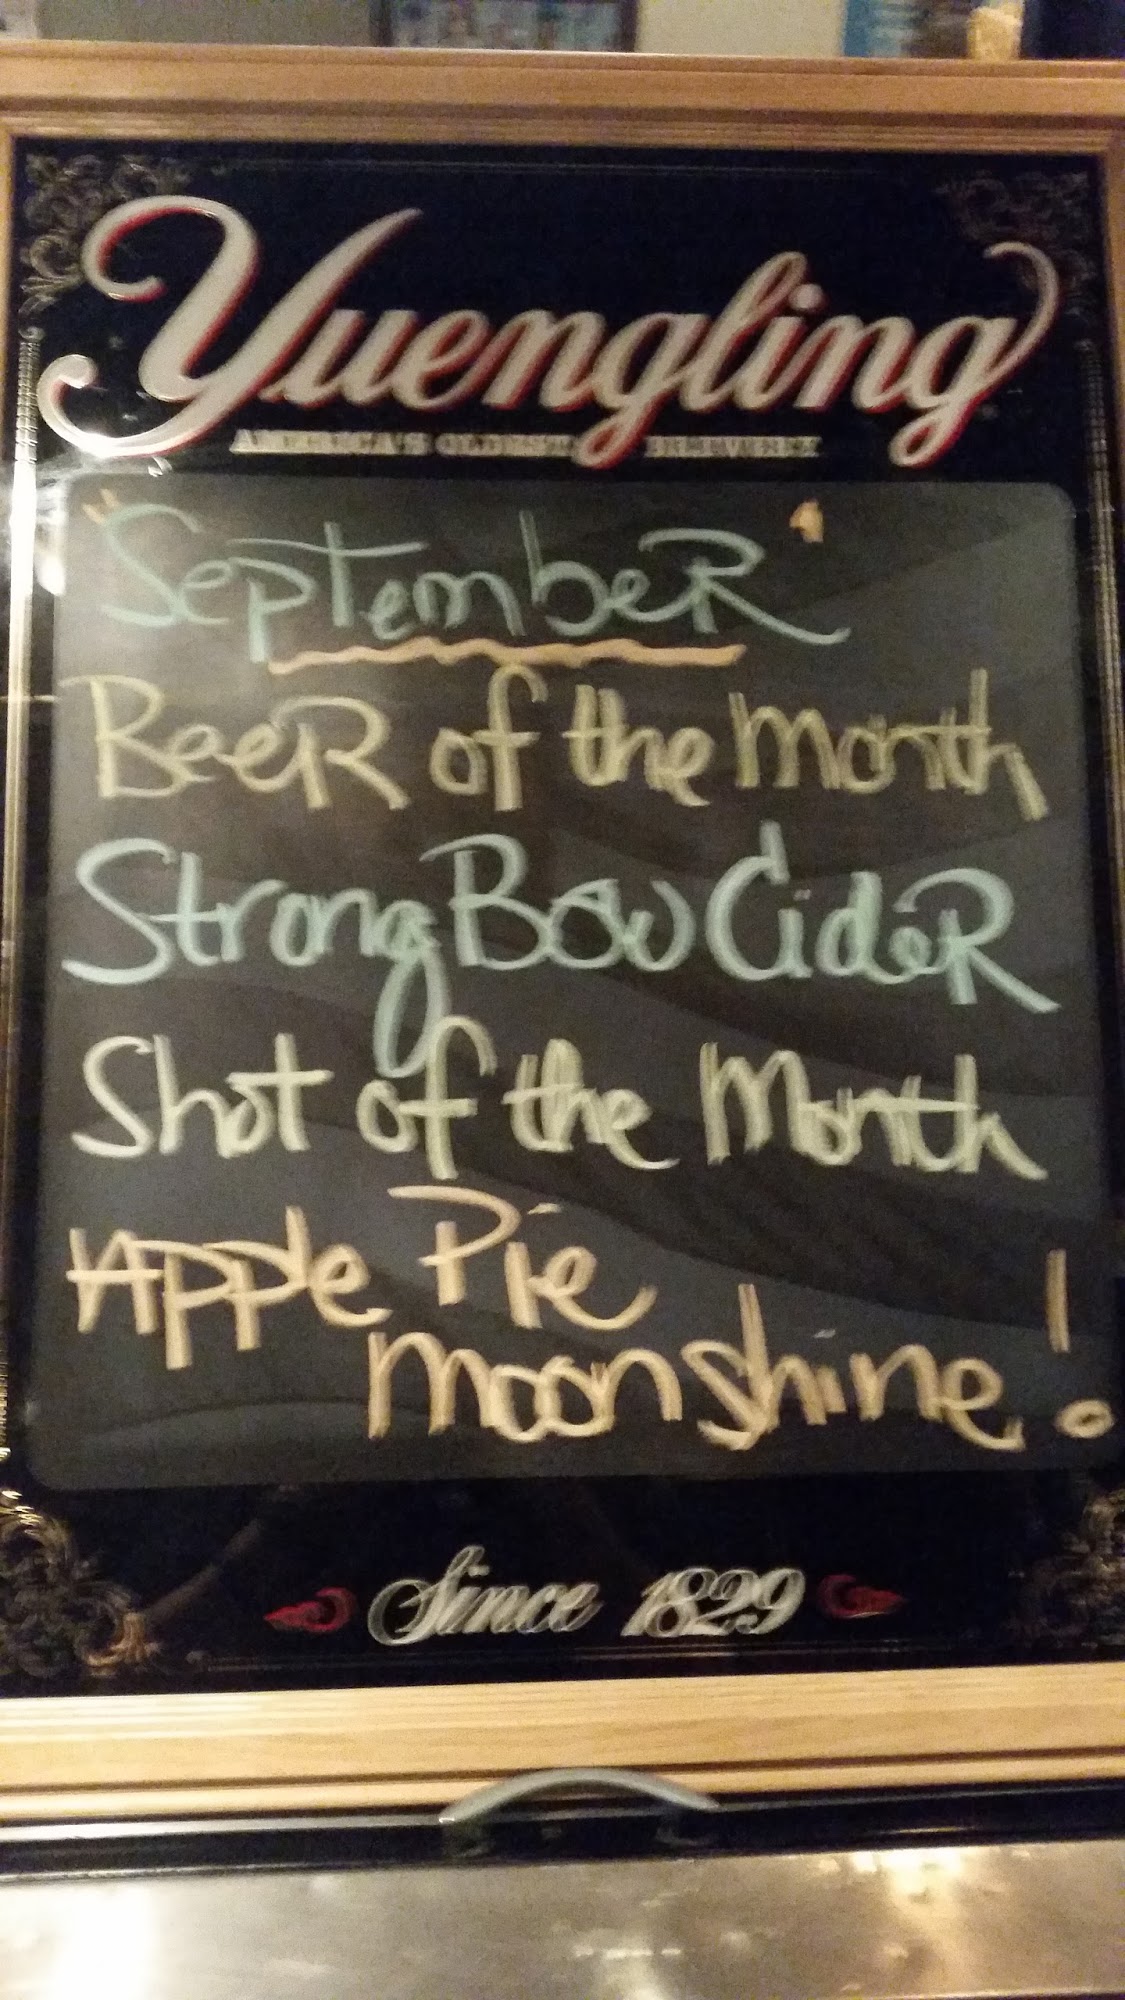 Yuengling
AMERICA'S OLDEST BREWERY
"September"
Beer of the Month
StrongBow Cider
Shot of the Month
Apple Pie
moonshine!
Since 1829